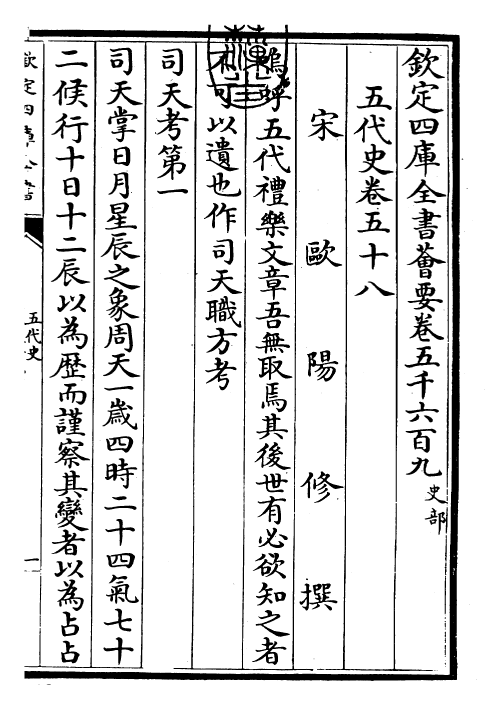 欽定四庫全書薈要卷五千六百九
史部
五代史卷五十八
宋歐陽修撰
嗚呼五代禮樂文章吾無取焉其後世有必欲知之者
不可以遺也作司天職方考
司天考第一
司天掌日月星辰之象周天一歲四時二十四氣七十
二候行十日十二辰以為歴而謹察其變者以為占占
欽定四庫全書
五代史
一